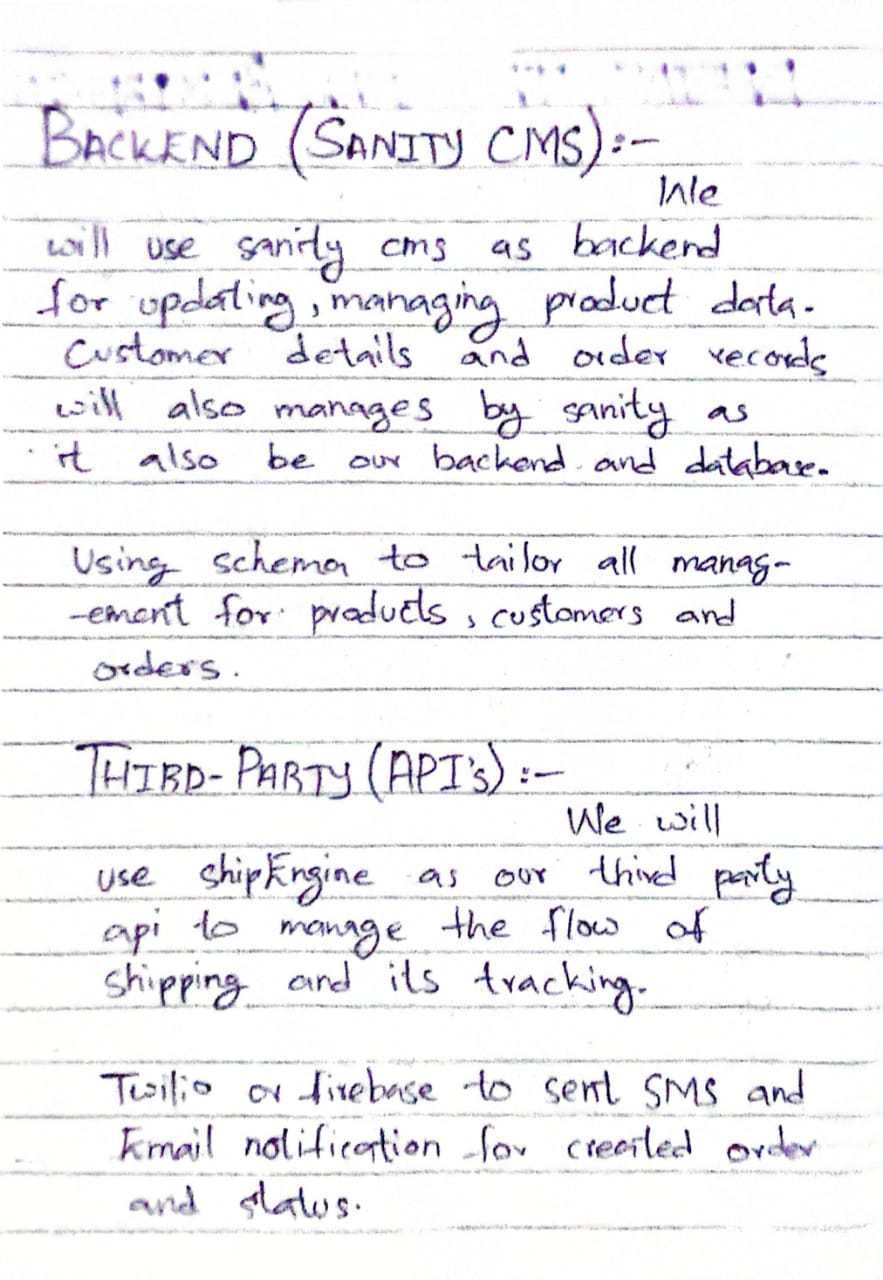 BACKEND (SANITY CMS):-
We
will use sanity cms as backend
for updating, managing product data.
Customer details and order records
will also manages by sanity as
it also be our backend and database.
Using schema to tailor all manag-
-ement for products, customers and
orders.
THIRD-PARTY (API's):-
We will
use shipEngine as our third party
api to manage the flow of
shipping and its tracking.
Twilio or firebase to sent SMS and
Email notification for created order
and status.